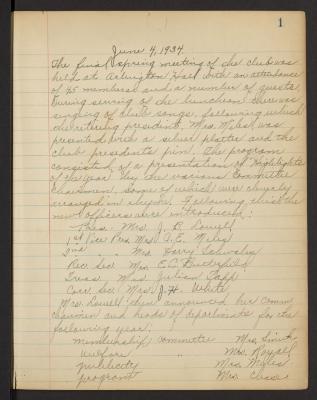 1
June 4, 1934
The final spring meeting of the club was
held at Arlington Hall with an attendance
of 45 members and a number of guests.
During serving of the luncheon there was
singing of club songs, following which
the retiring president, Mrs. Miles, was
presented with a silver platter and the
club presidents pin. The program
consisted of a presentation of Highlights
of the year by the various Committee
Chairmen, some of which were cleverly
arranged in rhyme. Following this the
new officers were introduced:
Pres. Mrs. J. B. Lowell
1st Vice Pres. Mrs. E. Miles
2nd " " Mrs. Harry Schwalm
Rec. Sec. Mrs. E.C.
Treas. Mrs. Julian Capp
Corr. Sec. Mrs. J.H. White
Mrs. Lowell then announced her Comm.
chairmen and heads of departments for the
following year:
Membership committee Mrs. Smith
Welfare " Mrs.
Publicity Mrs. Miles
program Mrs.